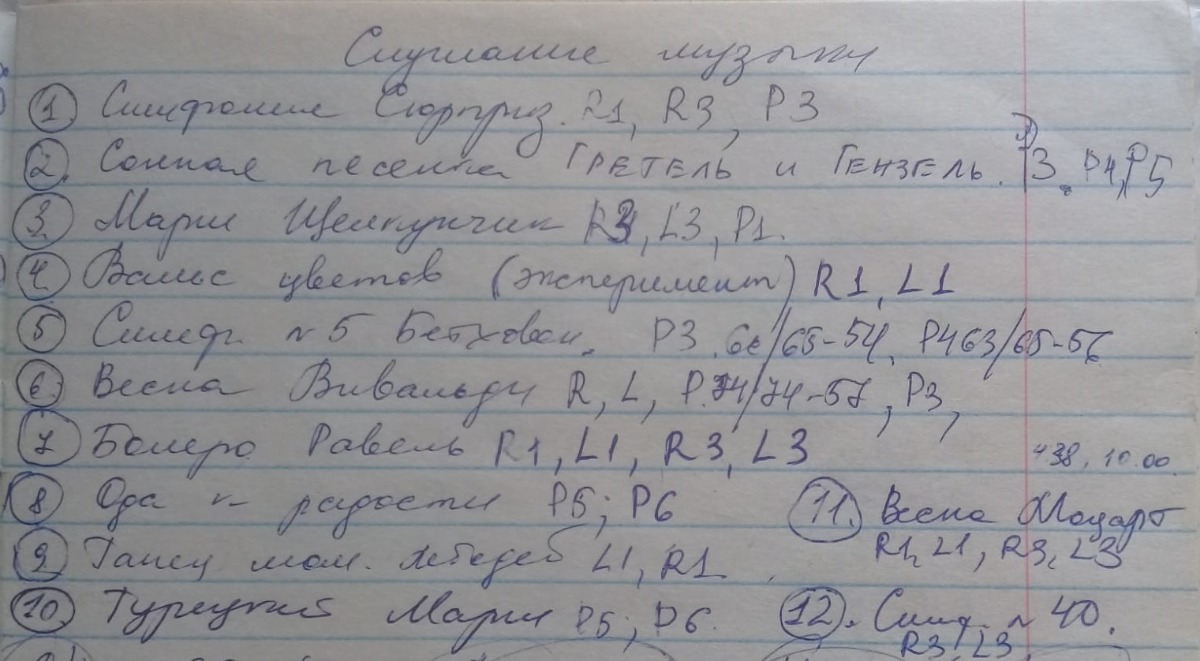 Слушание музыки
① Симфония Сюрприз. R1, R3, P3
② Сонная песенка ГРЕТЕЛЬ и ГЕНЗЕЛЬ. P3. P4, P5
③ Марш Щелкунчик R3, L3, P1.
④ Вальс цветов (эксперимент) R1, L1
⑤ Симф. N5 Бетховен. P3. /65-54, P4 63/65-56
⑥ Весна Вивальди R, L, P. 74/74-57, P3,
⑦ Болеро Равель R1, L1, R3, L3
438, 10.00
⑧ Ода к радости P5; P6
⑨ Танец мал. лебедей L1, R1
⑩ Турецкий Марш P5; P6.
⑪ Весна Моцарт
R1, L1, R3, L3
⑫. Симф. N 40.
R3, L3